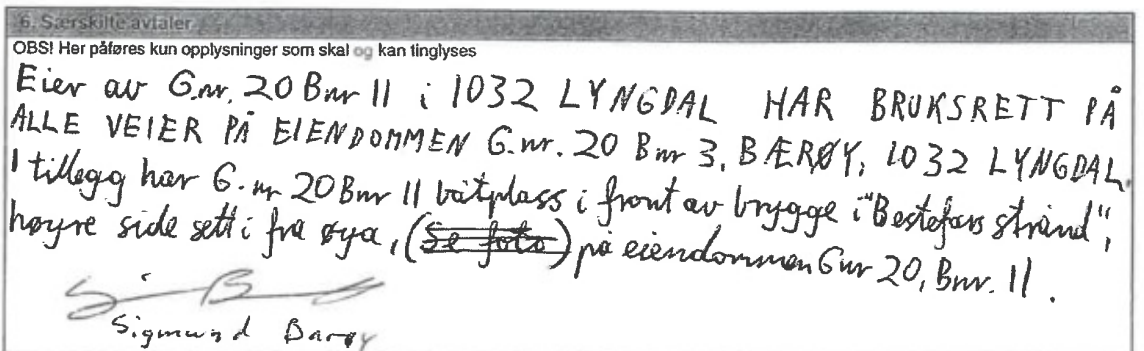 6. Særskilte avtaler
OBS! Her påføres kun opplysninger som skal og kan tinglyses
Eier av G.nr. 20 Bnr 11 i 1032 LYNGDAL HAR BRUKSRETT PÅ
ALLE VEIER PÅ EIENDOMMEN G.nr. 20 Bnr 3, BÆRØY, 1032 LYNGDAL.
I tillegg har G.nr 20 Bnr 11 båtplass i front av brygge i "Bestefars strand",
høyre side sett i fra øya, (Se foto) på eiendommen Gnr 20, Bnr. 11.
Sigmund Barøy